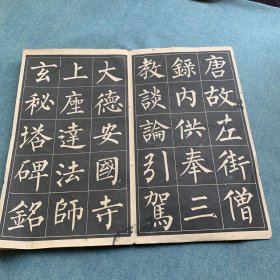 唐故左街僧
錄内供奉三
教談論引駕
大德安國寺
上座達法師
玄秘塔碑銘